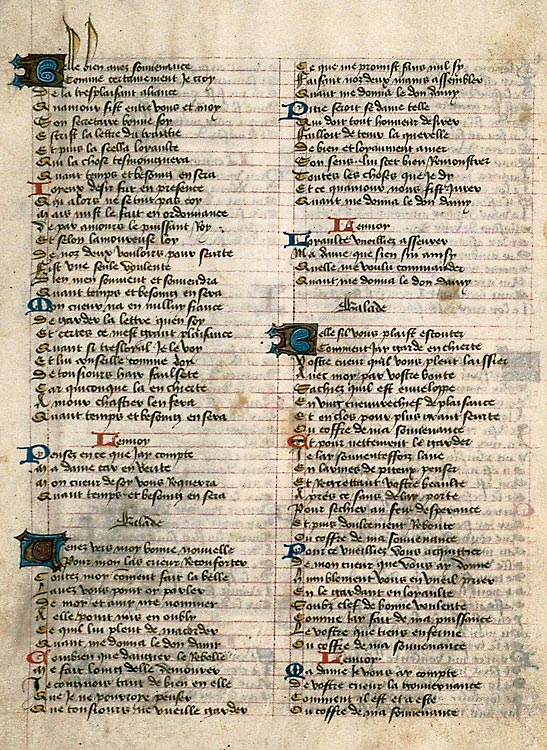 Belle bien avez souvenance
Comme certainement Je croy
De la tresplaisant aliance
Quamour fist entre vous et moy
Son secretaire bonne foy
Escrist la lettre du traittie
Et puis la seella loyaulte
Qui la chose tesmoingnera
Quant temps et besoing en sera
Joyeux desir fut en presence
Qui alors ne se tut pas coy
Mais mist le fait en ordonnance
De par amours le puissant Roy
Et selon lamoureuse loy
De noz deux vouloirs pour seurte
Fist une seule voulente
Bien men souvient et souvendra
Quant temps et besoing en sera
Mon cueur na en nulluy fiance
De garder la lettre quen soy
Et certes ce mest grant plaisance
Quant si tresloyal Je le voy
Et lui conseille comme doy
De tousiours hair faulsete
Car quiconque la en chierte
Amour chastier len fera
Quant temps et besoing en sera
Lenvoy
Pensez en ce que Jay compte
Ma dame car en verite
Mon cueur de foy vous requerra
Quant temps et besoing en sera
Balade
Venez vers moy bonne nouvelle
Pour mon las cueur Reconforter
Contez moy coment fait la belle
Lavez vous point oy parler
De moy et amy me nommer
A elle point mis en oubly
Ce quil lui pleut de macorder
Quant me donna le don damy
Combien que dangier le Rebelle
Me fait loing delle demourer
Je congnois tant de bien en elle
Que Je ne pourroye penser
Que tousiours ne vueille garder
Ce que me promist sans nul sy
Faisant noz deux mains assembler
Quant me donna le don damy
Pitie seroit se dame telle
Qui doit tout honneur desirer
Failloit de tenir la querelle
De bien et loyaument amer
Son sens lui scet bien Remonstrer
Toutes les choses que Je dy
Et ce quamour nous fist Jurer
Quant me donna le don damy
Lenvoy
Loyaulte vueilliez asseurer
Ma dame que sien suy ainsy
Quelle me voulu commander
Quant me donna le don damy
Balade
Belle sil vous plaist escouter
Comment Jay garde en chierte
Vostre cueur quil vous pleut laissier
Avec moy par vostre bonte
Sachez quil est enveloppe
En ung cueuvrechief de plaisance
Et enclos pour plus grant seurte
Ou coffre de ma souvenance
Et pour nettement le garder
Je lay souventeffoiz lave
En larmes de piteux penser
Et Regrettant vostre beaulte
Apres ce sans delay porte
Pour sechier au feu desperance
Et puis doulcement Reboute
Ou coffre de ma souvenance
Pour ce vueilliez vous acquitter
De mon cueur que vous ay donne
Humblement vous en vueil prier
En le gardant en loyaulte
Soubz clef de bonne voulente
Comme Jay fait de ma puissance
Le vostre que tiens enferme
Ou coffre de ma souvenance
Lenvoy
Ma dame Je vous ay compte
De vostre cueur la gouvernance
Comment il est et a este
Ou coffre de ma souvenance